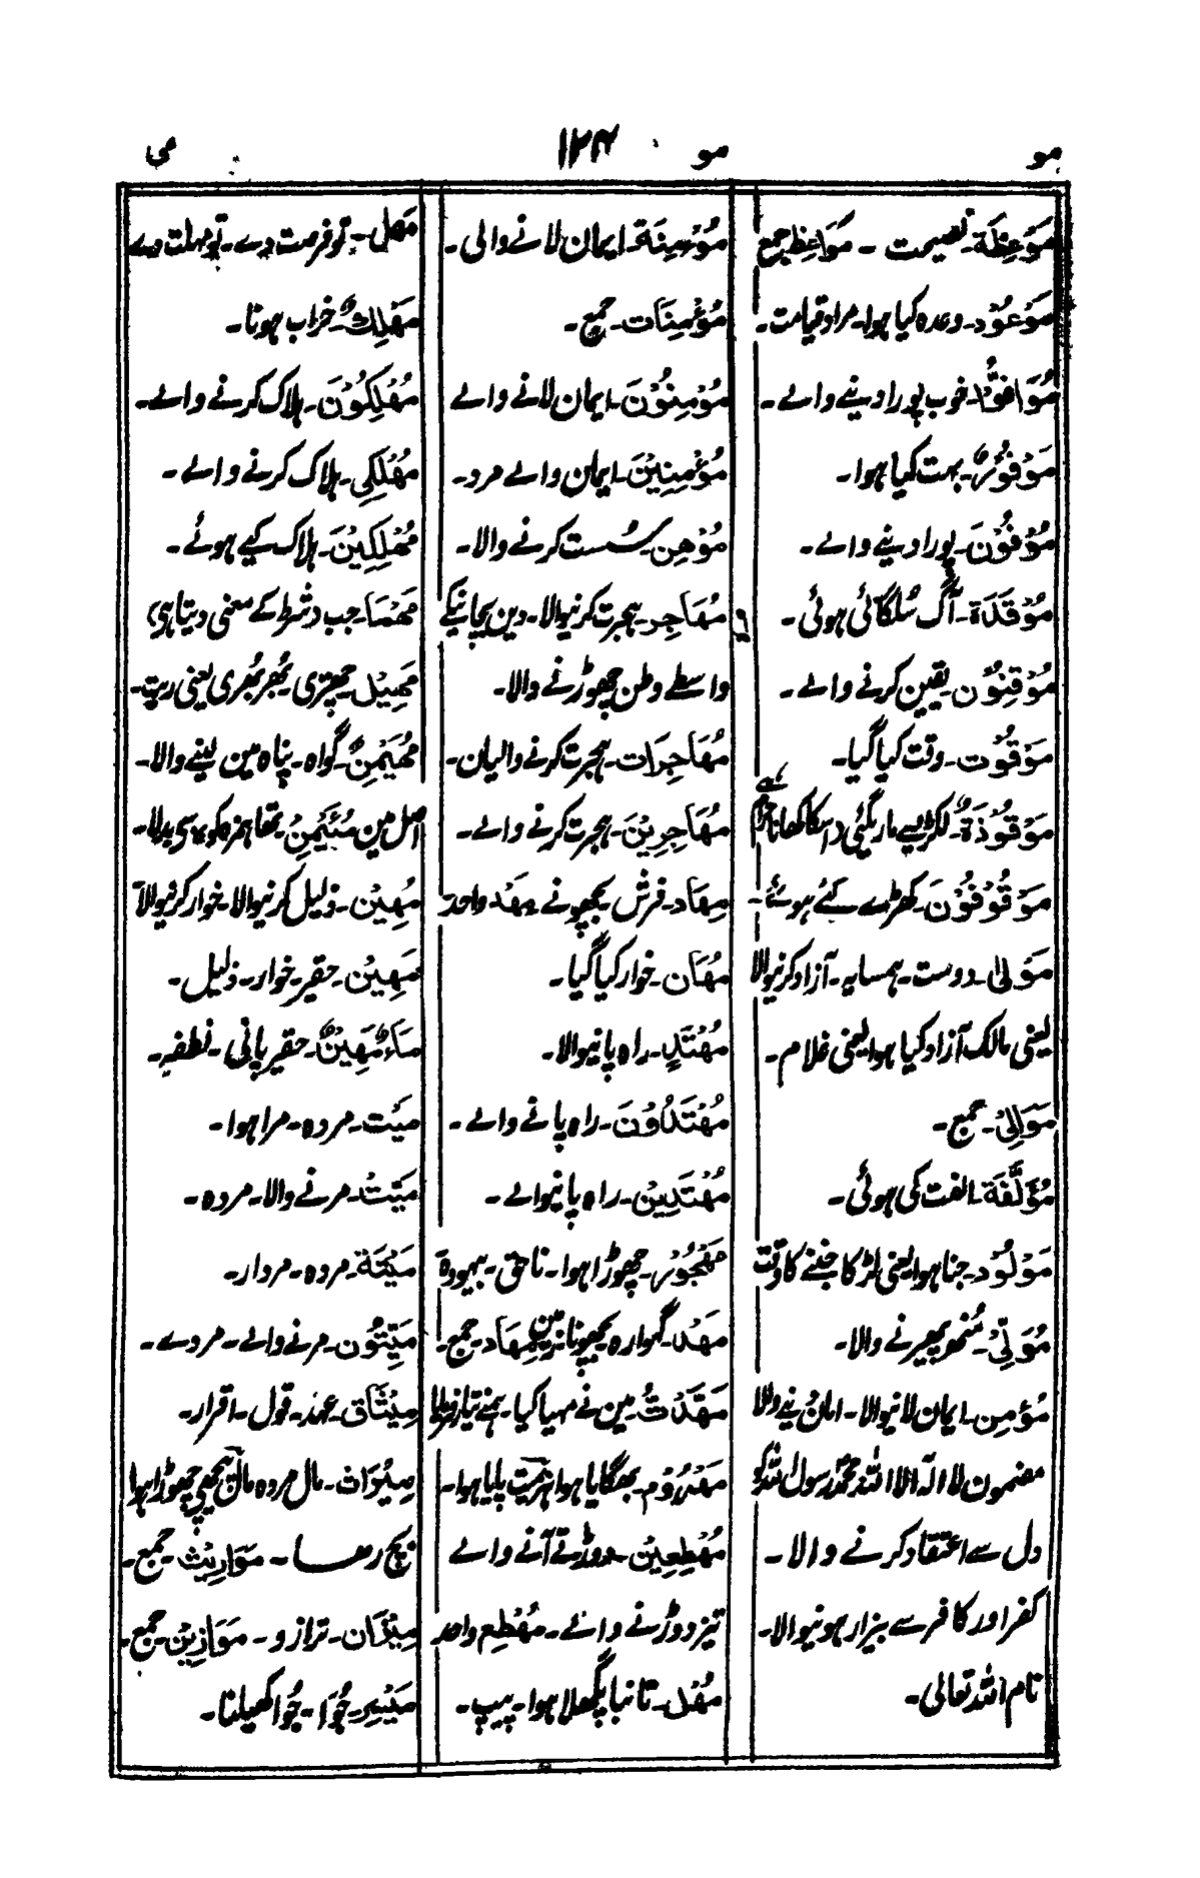 مو
مو
۱۲۴
می
مَوْعِظَة۔ نصیحت ۔ مَوَاعِظ جمع
مَوْعُوْد۔ وعدہ کیا ہوا۔ مراد قیامت۔
خوب پورا دینے والے ۔
مَوْفُوْرٌ۔ بہت کیا ہوا۔
مُوْفُوْنَ۔ پورا دینے والے ۔
مُوْقَدَة۔ آگ سُلگائی ہوئی ۔
مُوْقِنُوْن۔ یقین کرنے والے ۔
مَوْقُوْت۔ وقت کیا گیا۔
مَوْقُوْذَةٌ۔ لکڑیسے ماریگئی (اسکا کھانا حرام ہے
مَوْقُوْفُوْنَ۔ کھڑے کئے ہوئے۔
مَوْلٰی۔ دوست۔ ہمسایہ۔ آزاد کرنیوالا
یعنی مالک آزاد کیا ہوا یعنی غلام۔
مَوَالِیْ۔ جمع ۔
مُؤَلَّفَة۔ الفت کی ہوئی ۔
مَوْلُوْد۔ جنا ہوا یعنی لڑکا جننے کا وقت
مُوَلِّیْ۔ مُنھ پھیرنے والا۔
مُؤْمِن۔ ایمان لانیوالا۔ امان دینے والا
مضمون لا الہ الا اللہ محمد رسول اللہ کو
دل سے اعتقاد کرنے والا ۔
کفر اور کافر سے بیزار ہونیوالا۔
نام اللہ تعالی۔
مُؤْمِنَة۔ ایمان لانے والی ۔
مُؤْمِنَات۔ جمع ۔
مُؤْمِنُوْنَ۔ ایمان لانے والے
مُؤْمِنِیْنَ۔ ایمان والے مرد۔
مُوْهِن۔ سُست کرنے والا۔
مُهَاجِر۔ ہجرت کرنیوالا۔ دین بچانیکے
واسطے وطن چھوڑنے والا۔
مُهَاجِرَات۔ ہجرت کرنے والیان۔
مُهَاجِرِیْنَ۔ ہجرت کرنے والے ۔
مِهَاد۔ فرش بچھونے مَهْد واحد
مُهَان۔ خوار کیا گیا۔
مُهْتَدٍ۔ راہ پانیوالا۔
مُهْتَدُوْنَ۔ راہ پانے والے ۔
مُهْتَدِیْن۔ راہ پانیوالے ۔
مَهْجُوْر۔ چھوڑا ہوا۔ ناحق۔ بیہودہ
مَهْد۔ گہوارہ بچھونا زمین مِهَاد۔ جمع۔
مَهَّدْتُّ۔ مین نے مہیا کیا۔
مَهْزُوْم۔ بھگایا ہوا ہزیمت پایا ہوا۔
مُهْطِعِیْن۔ دوڑتے آنے والے
تیز دوڑنے والے۔ مُهْطِع واحد
مُهْل۔ تانبا پگھلا ہوا۔ پیپ۔
مَهِّل۔ تو فرصت دے۔ تو مہلت دے
مَهْلِكٌ۔ خراب ہونا۔
مُهْلِكُوْنَ۔ ہلاک کرنے والے۔
مُهْلِكِی۔ ہلاک کرنے والے ۔
مُهْلِكِیْنَ۔ ہلاک کیے ہوئے ۔
مَهْمَا۔ جب (شرط کے معنی دیتا ہی)
مَهِیْل۔ بھُربھُری یعنی ریت۔
مُهَیْمِنٌ۔ گواہ۔ پناہ مین لینے والا۔
اصل مین مُئَیْمِنْ تھا ہمزہ کو ہ سی بدلا۔
مُهِیْن۔ ذلیل کرنیوالا۔ خوار کرنیوالا
مَهِیْن۔ حقیر۔ خوار۔ ذلیل۔
مَآءٌ مَّهِیْنٌ۔ حقیر پانی ۔ نطفہ۔
مَیْت۔ مردہ۔ مرا ہوا۔
مَیِّتٌ۔ مرنے والا۔ مردہ۔
مَیْتَة۔ مردہ۔ مردار۔
مَیِّتُوْن۔ مرنے والے۔ مردے۔
مِیْثَاق۔ عہد۔ قول۔ اقرار۔
مِیْرَاث۔ مال مردہ پیچھے چھوڑا ہوا
بچ رہا ۔ مَوَارِیْث جمع۔
مِیْزَان۔ ترازو۔ مَوَازِیْن جمع۔
مَیْسِر۔ جُوَا۔ جُوا کھیلنا۔